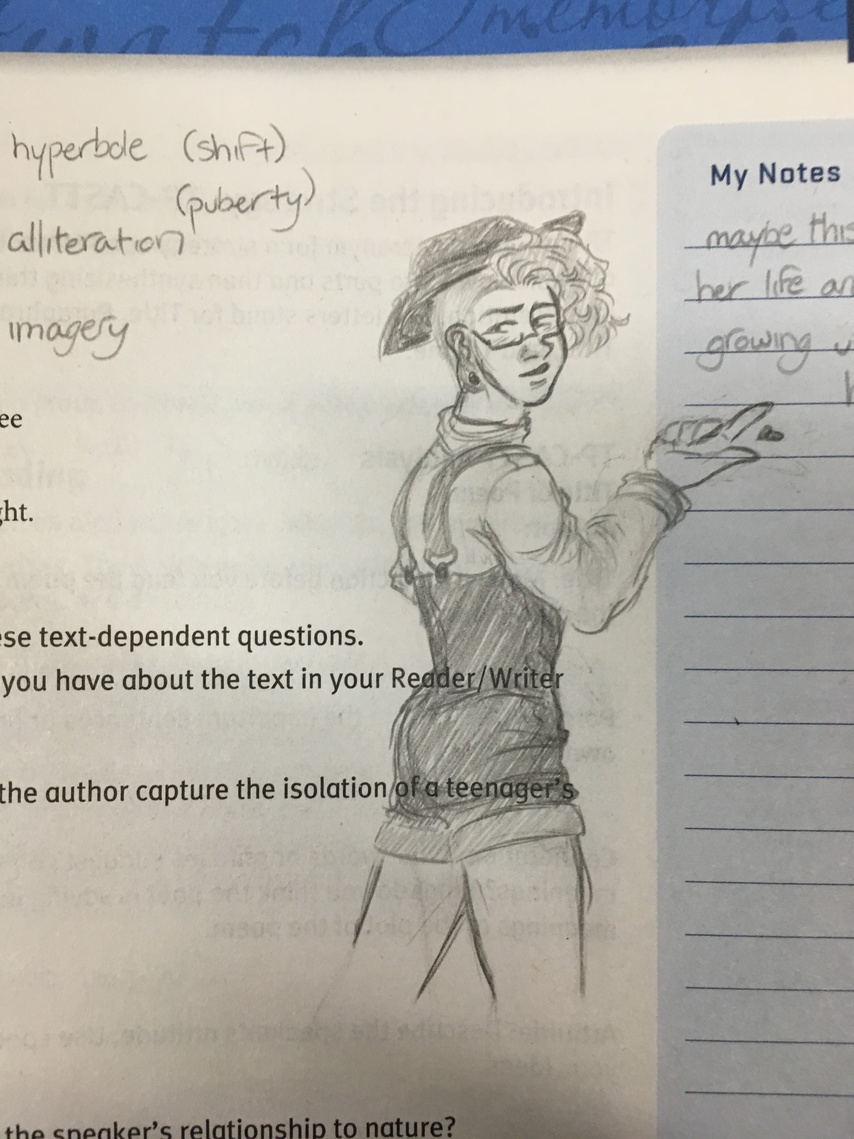 watch memorise
hyperbole (shift)
(puberty)
alliteration
imagery
My Notes
maybe this
her life an
growing u
ee
ght.
ese text-dependent questions.
you have about the text in your Reader/Writer
the author capture the isolation of a teenager's
the speaker's relationship to nature?